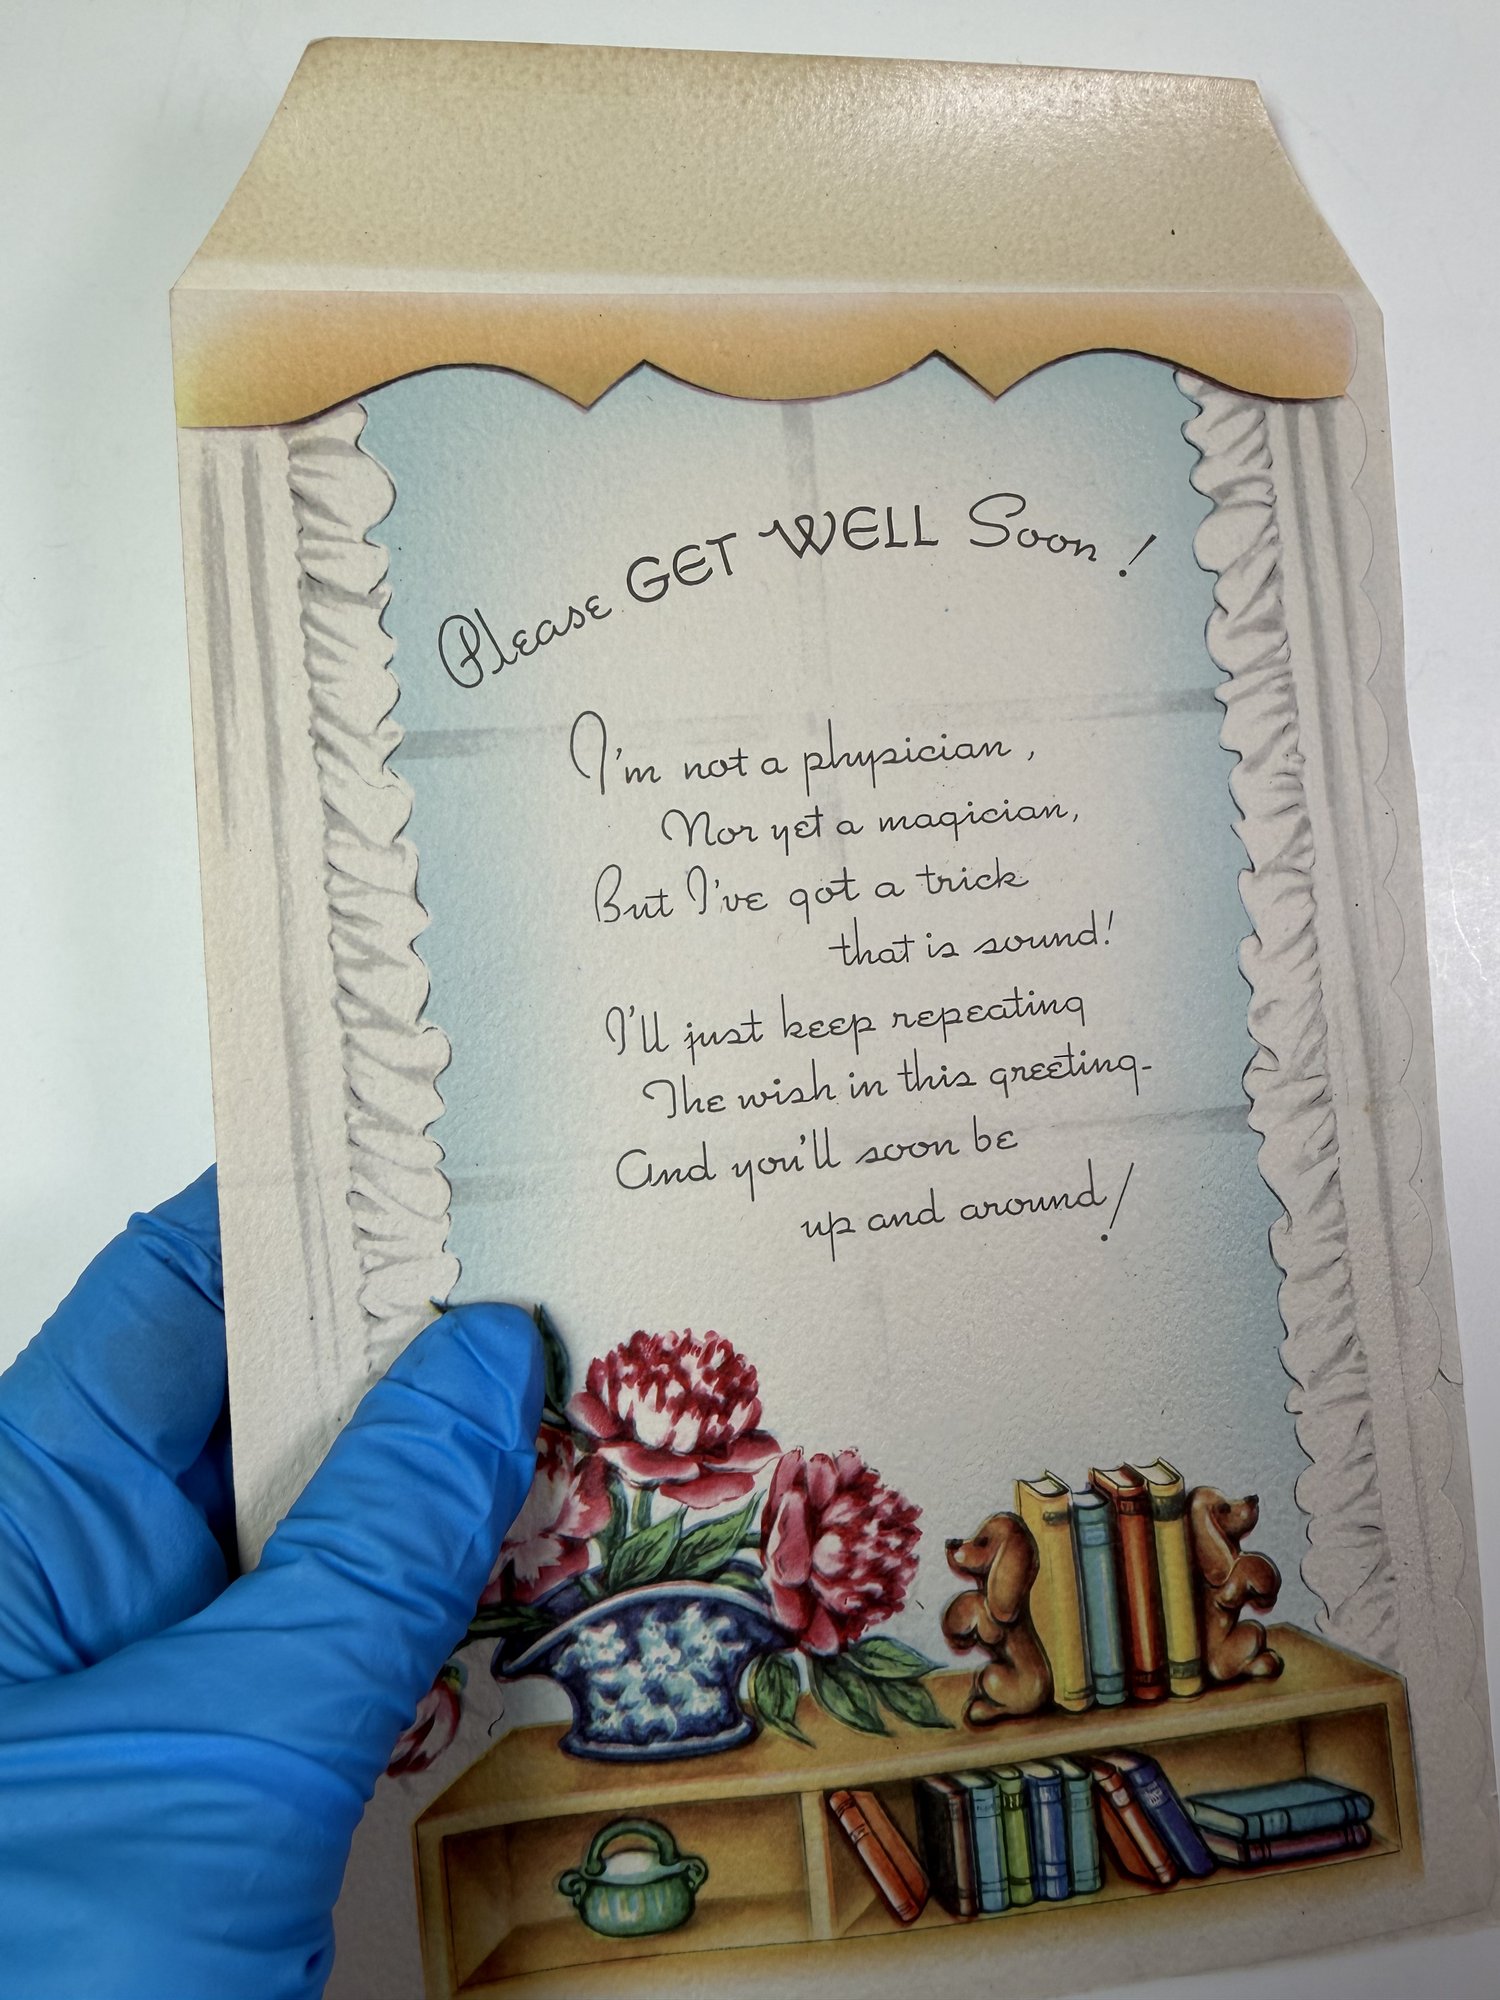 Please GET WELL Soon!
I'm not a physician,
Nor yet a magician,
But I've got a trick
that is sound!
I'll just keep repeating
The wish in this greeting-
And you'll soon be
up and around!